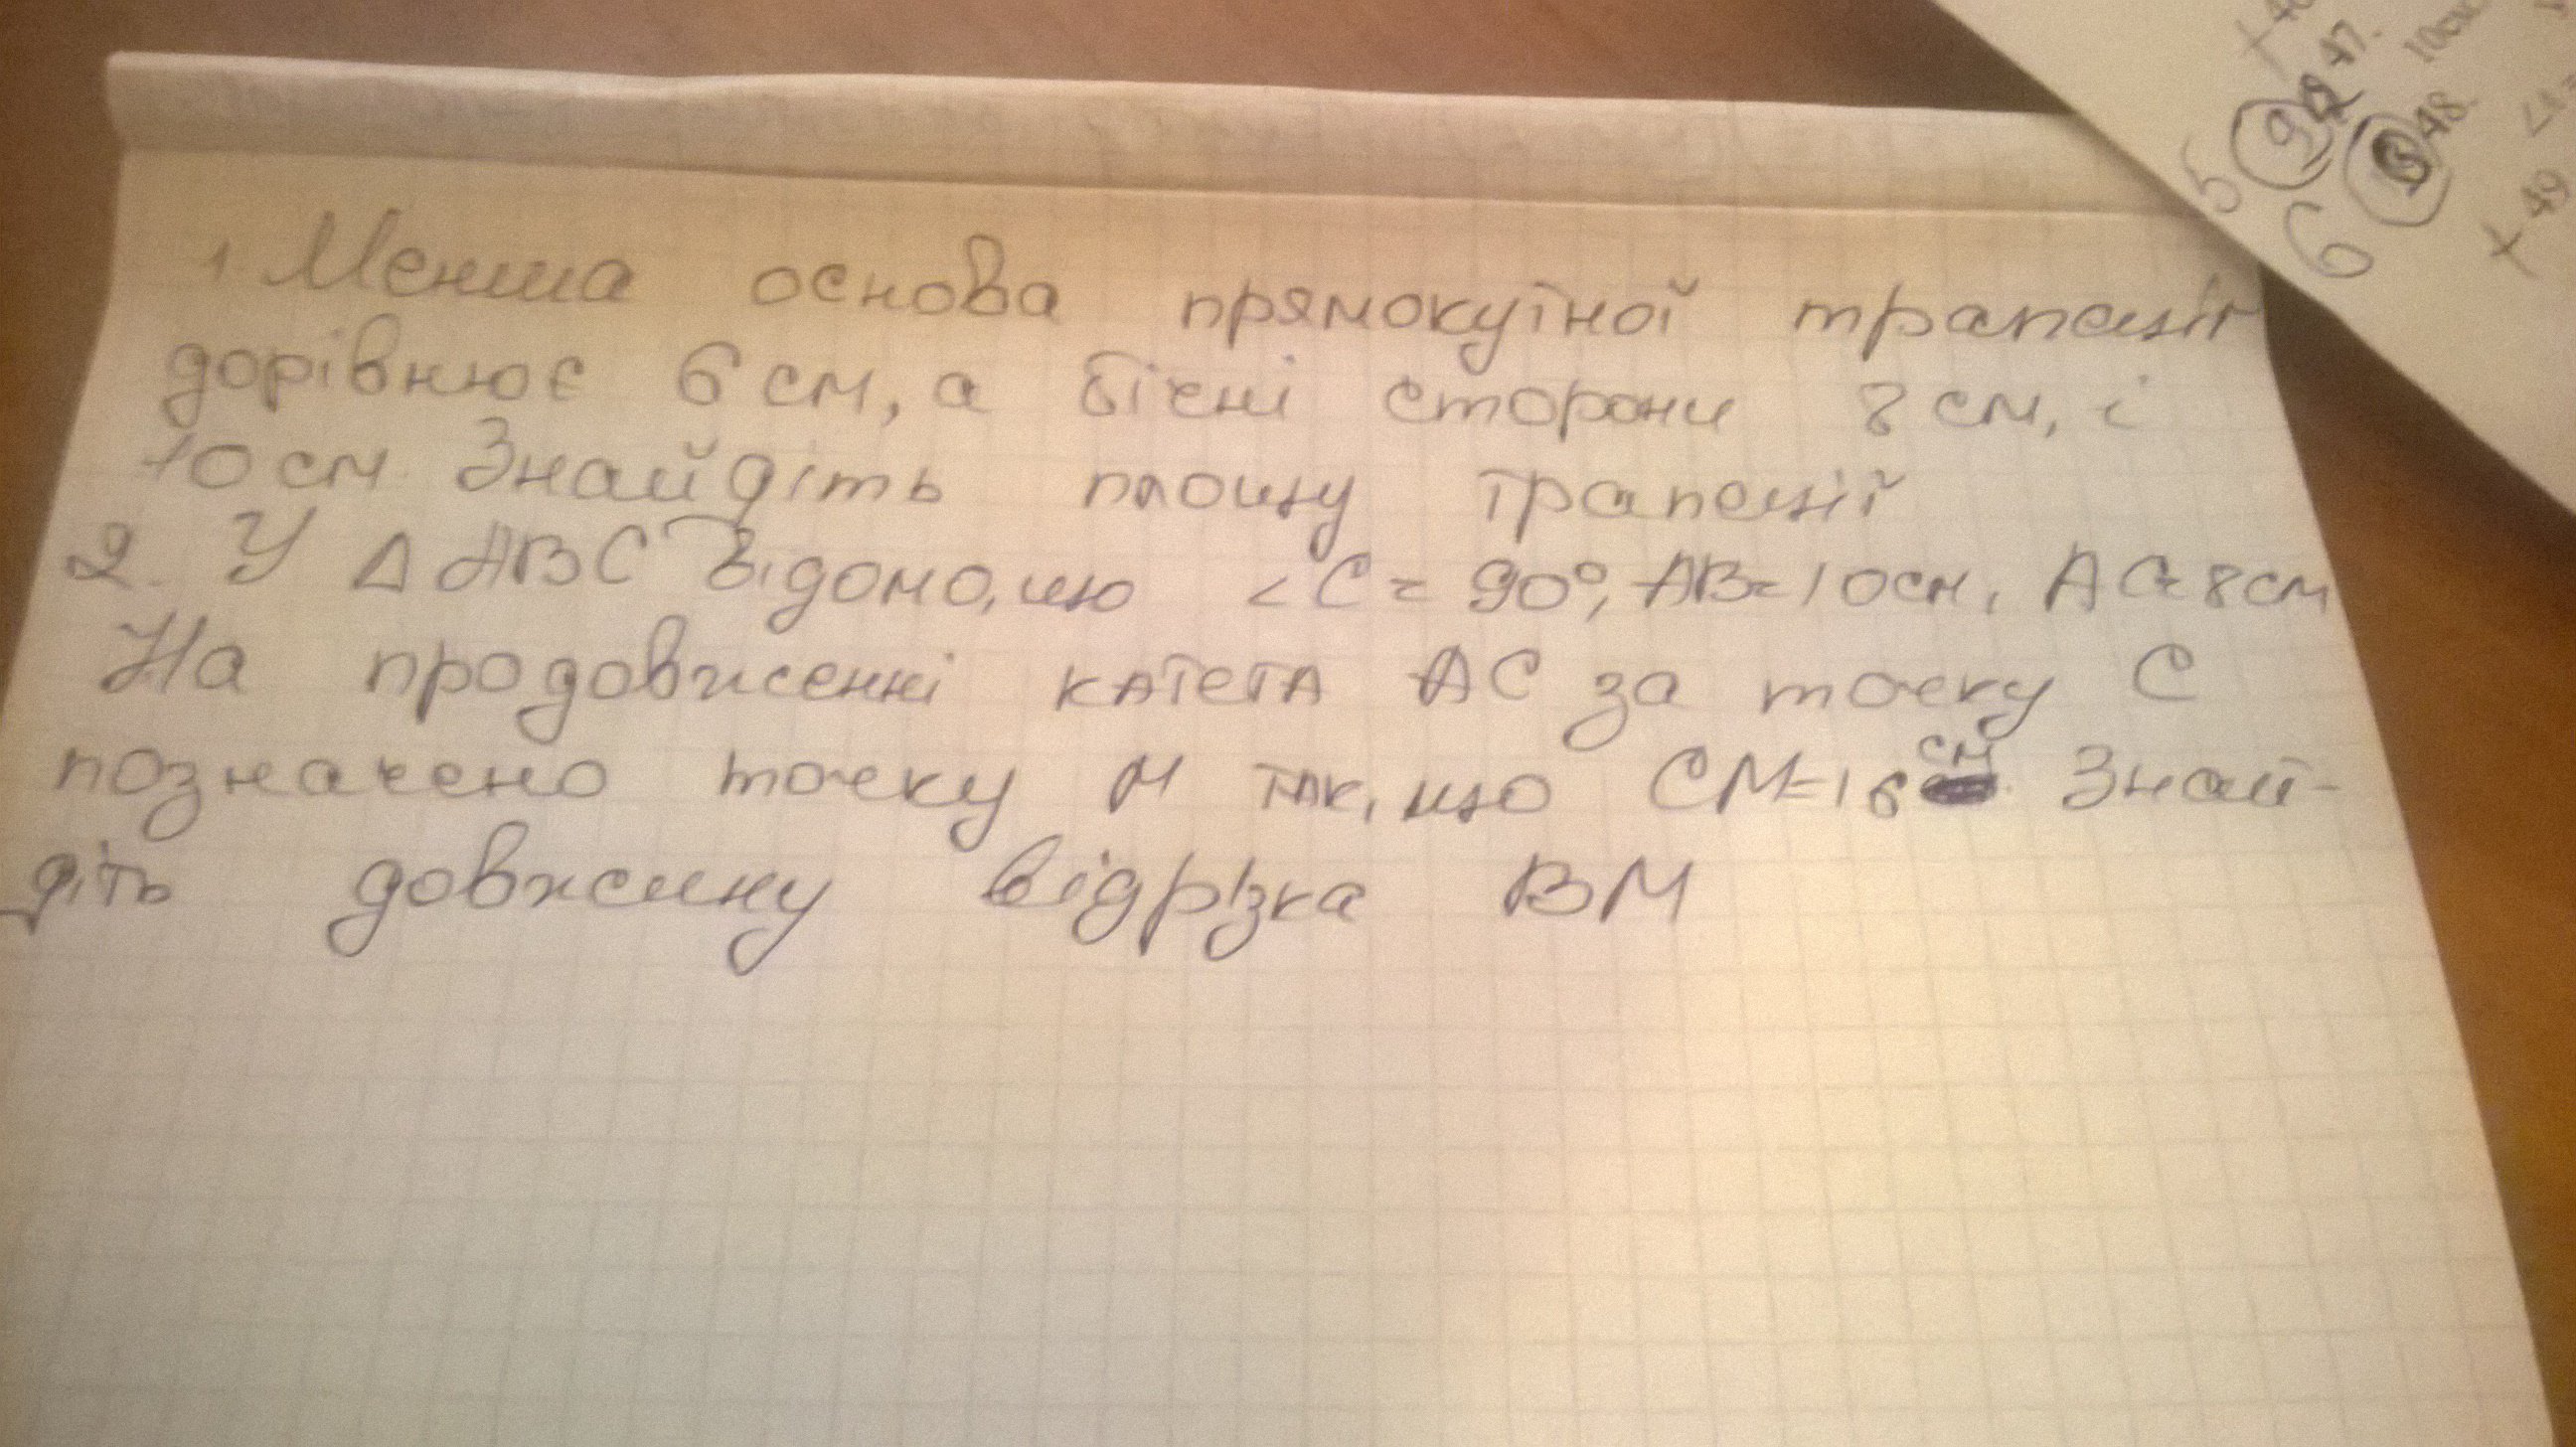 1. Менша основа прямокутної трапеції
дорівнює 6 см, а бічні сторони 8 см, і
10 см. Знайдіть площу трапеції
2. У Δ ABC відомо, що <C = 90°, AB=10см, AC=8см
На продовженні катета AC за точку C
позначено точку M так, що CM=16 см Знай-
діть довжину відрізка BM
47.
10см
5 9
6 48.
+ 49